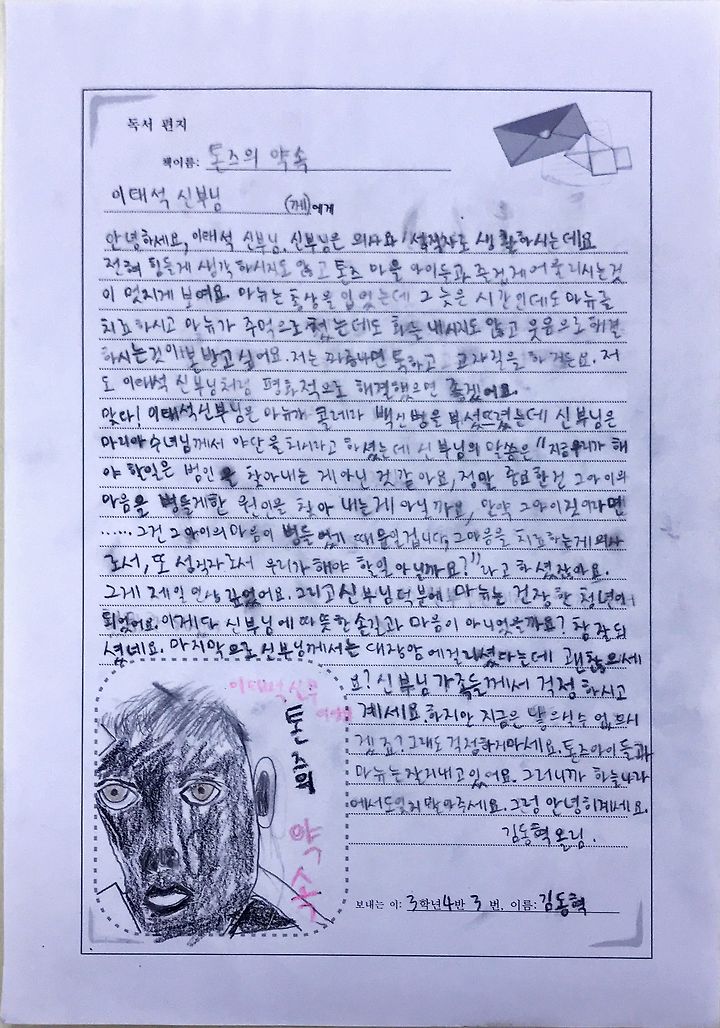 독서 편지
책이름: 톤즈의 약속
이태석 신부님 (께)에게
안녕하세요, 이태석 신부님. 신부님은 의사와 성직자로 생활하시는데요
전혀 힘들게 생각 하시지도 않고 톤즈 마을 아이들과 즐겁게 어울리시는것
이 멋지게 보여요. 마뉴는 총상을 입었는데 그 늦은 시간인데도 마뉴를
치료하시고 마뉴가 주먹으로 쳤는데도 화를 내시지도 않고 웃음으로 해결
하시는것이 본받고 싶어요. 저는 짜증나면 툭하고 고자질을 하거든요. 저
도 이태석 신부님처럼 평화적으로 해결했으면 좋겠어요.
맞다! 이태석신부님은 마뉴가 콜레라 백신병을 부셔뜨렸는데 신부님은
마리아수녀님께서 야단을 치시라고 하셨는데 신부님의 말씀은 "지금우리가 해
야 할일은 범인을 찾아내는 게 아닌 것같아요, 정말 중요한건 그아이의
마음을 병들게한 원인을 찾아 내는게 아닐까요, 만약 그아이짓이라면
...... 그건 그아이의 마음이 병들었기 때문일겁니다, 그마음을 치료하는게 의사
로서, 또 성직자로서 우리가 해야 할일 아닐까요?" 라고 하셨잖아요.
그게 제일 인상 깊었어요. 그리고 신부님 덕분에 마뉴는 건장한 청년이
되었어요. 이게 다 신부님에 따뜻한 손길과 마음이 아니었을까요? 참 잘되
셨네요. 마지막으로 신부님께서는 대장암에 걸리셨다는데 괜찮으세
요? 신부님 가족들께서 걱정 하시고
계세요. 하지만 지금은 낳으실수 없으시
겠죠? 그래도 걱정하지마세요. 톤즈아이들과
마뉴는 잘 지내고 있어요. 그러니까 하늘나라
에서도 잊지 말아주세요. 그럼 안녕히계세요.
김동혁 올림.
이태석 신부
톤즈의
약속
보내는 이: 3학년 4반 3 번, 이름: 김동혁